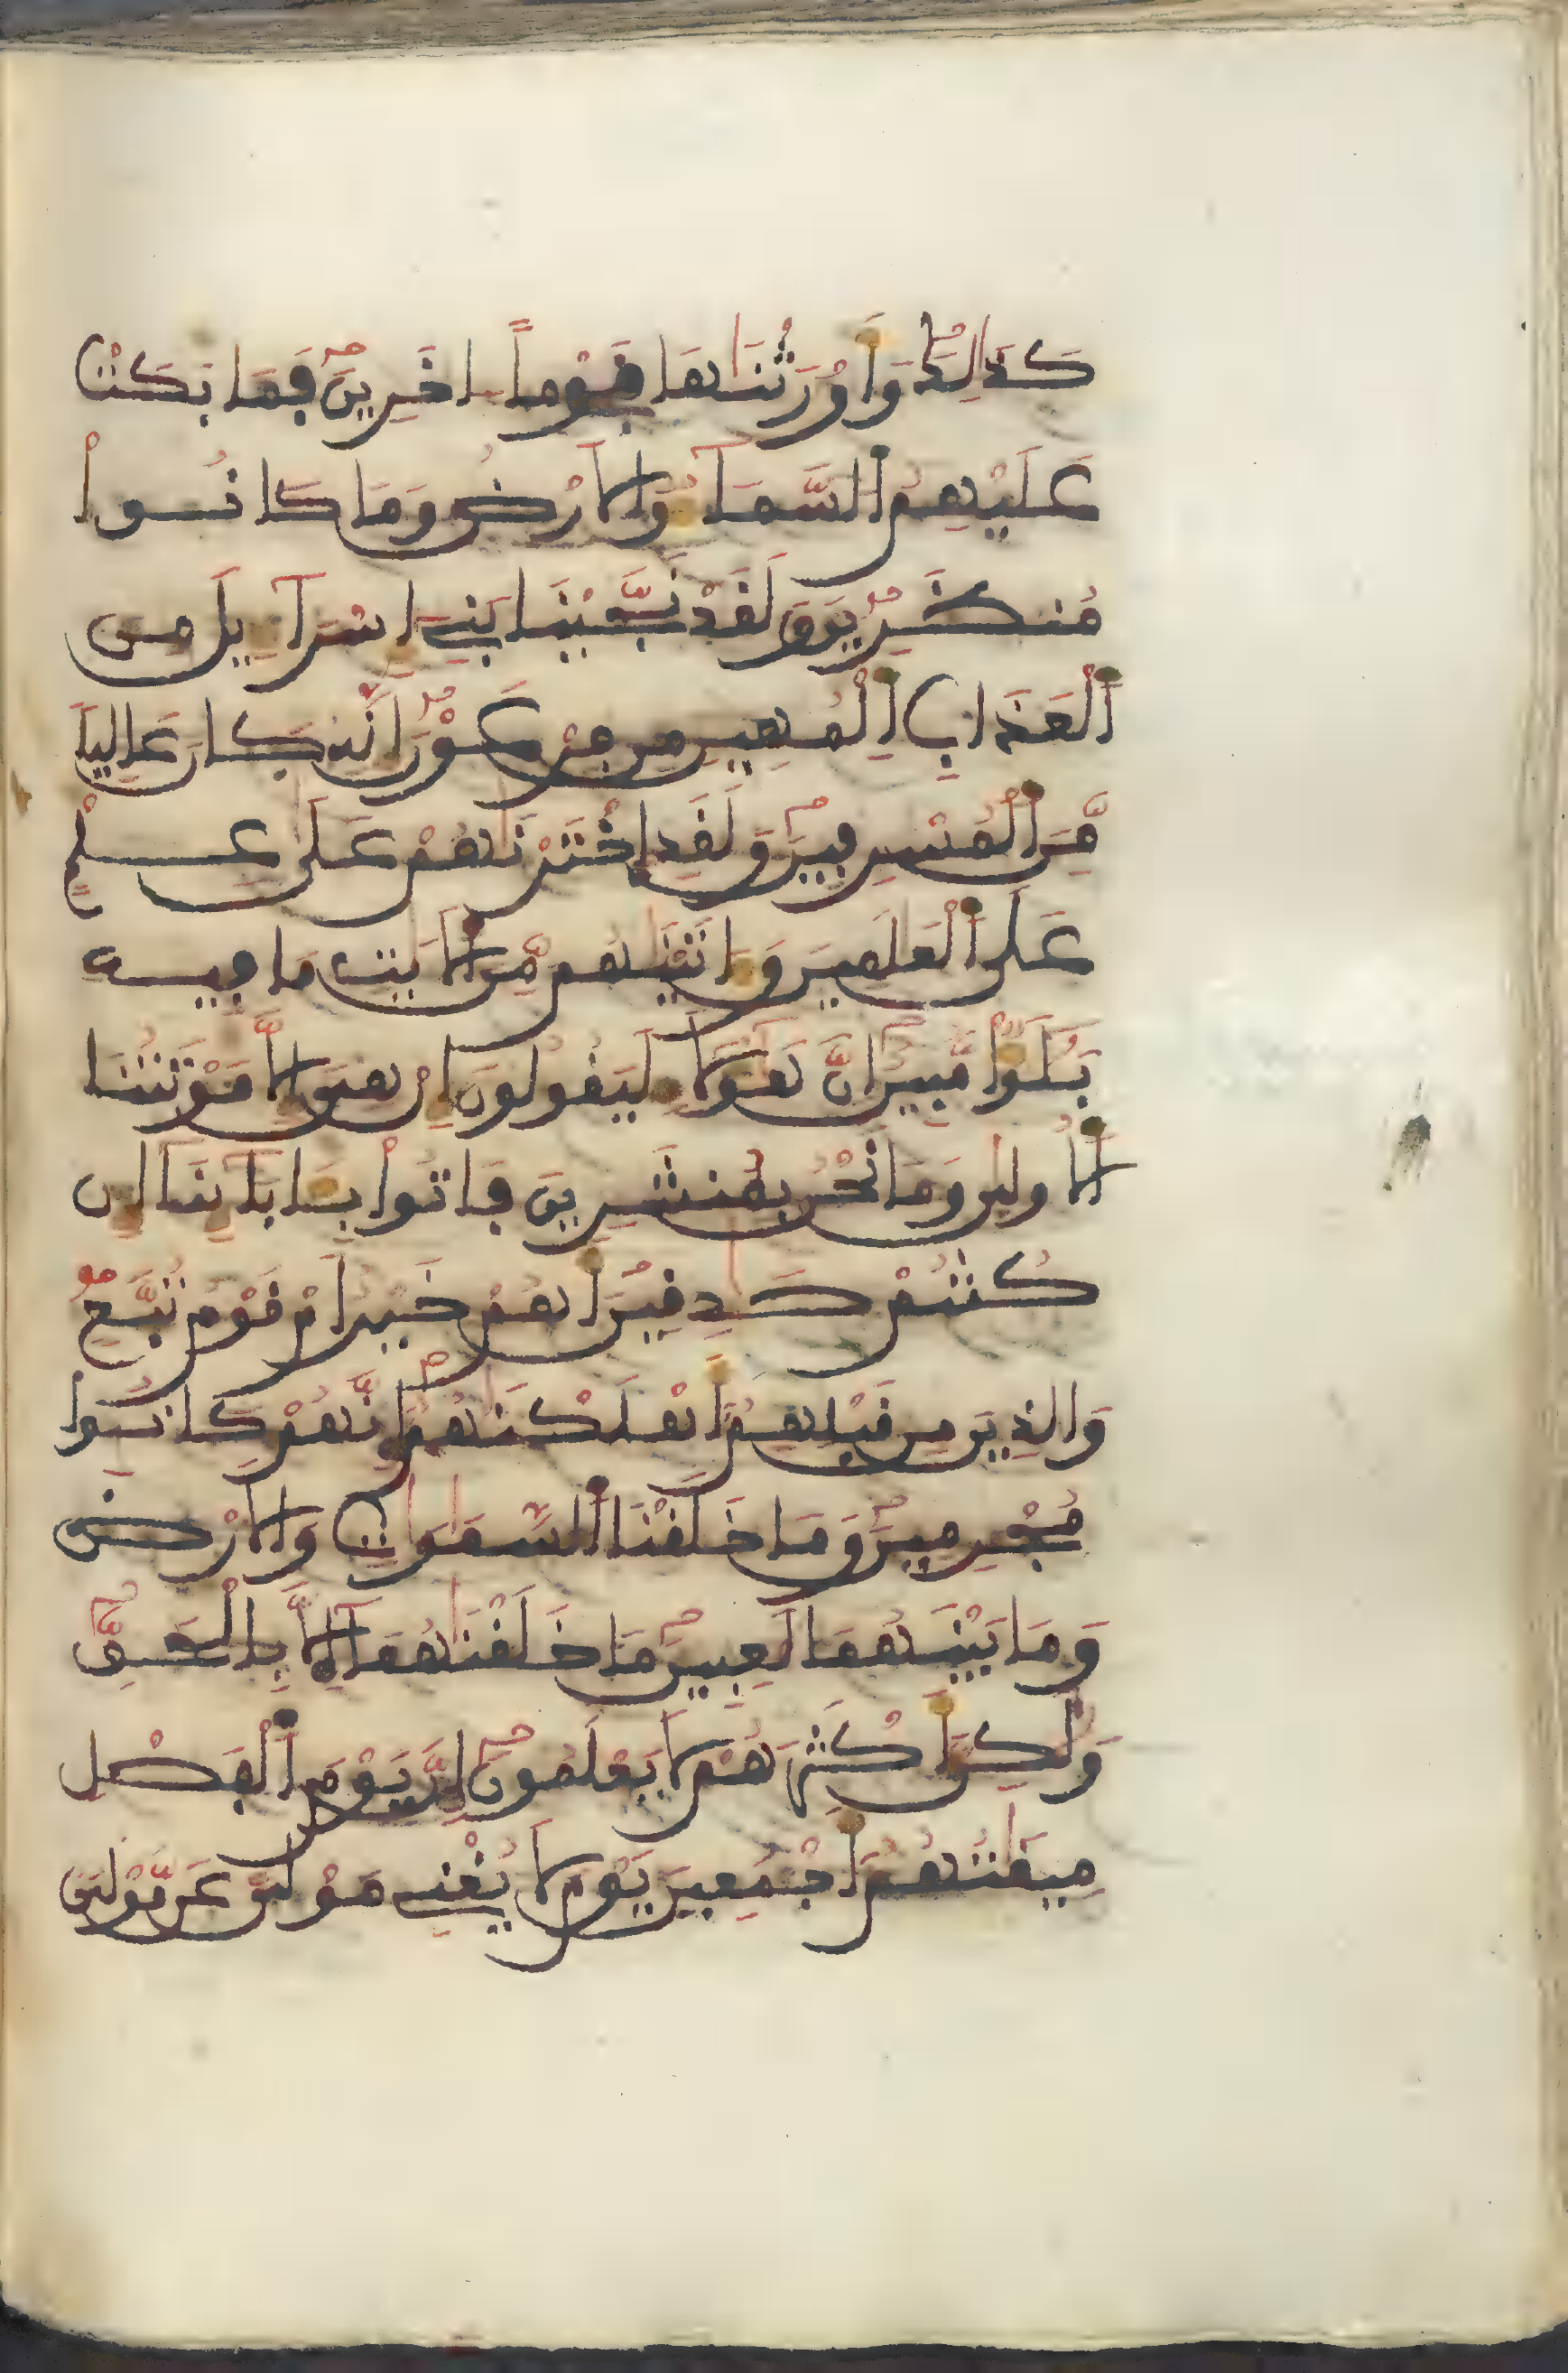 كَذَٰلِكَ وَأَوْرَثْنَٰهَا قَوْماً اخَرِينَ فَمَا بَكَتْ
عَلَيْهِمُ السَّمَآءُ وَالَارْضُ وَمَا كَانُوا
مُنظَرِينَ وَلَقَدْ نَجَّيْنَا بَنِے إِسْرَآءِيلَ مِنَ
اَلْعَذَابِ اِلْمُهِينِ مِن فِرْعَوْنَ إِنَّهُ كَانَ عَالِياً
مِّنَ اَلْمُسْرِفِينَ وَلَقَدِ اِخْتَرْنَٰهُمْ عَلَىٰ عِلْمٍ
عَلَى اَلْعَٰلَمِينَ وَءَاتَيْنَٰهُم مِّنَ اَلَايَٰتِ مَا فِيهِ
بَلَٰٓؤٌا مُّبِينٌ إِنَّ هَٰٓؤُلَآءِ لَيَقُولُونَ إِنْ هِيَ إِلَّا مَوْتَتُنَا
اَلُاولَىٰ وَمَا نَحْنُ بِمُنشَرِينَ فَاتُوا بِـَٔابَآئِنَا إِن
كُنتُمْ صَٰدِقِينَ أَهُمْ خَيْرٌ أَمْ قَوْمُ تُبَّعٍ
وَالذِينَ مِن قَبْلِهِمُ أَهْلَكْنَٰهُمُ إِنَّهُمْ كَانُوا
مُجْرِمِينَ وَمَا خَلَقْنَا اَلسَّمَٰوَٰتِ وَالَارْضَ
وَمَا بَيْنَهُمَا لَٰعِبِينَ مَا خَلَقْنَٰهُمَآ إِلَّا بِالْحَقِّ
وَلَٰكِنَّ أَكْثَرَهُمْ لَا يَعْلَمُونَ إِنَّ يَوْمَ اَلْفَصْلِ
مِيقَٰتُهُمُ أَجْمَعِينَ يَوْمَ لَا يُغْنِے مَوْلىً عَن مَّوْلىً